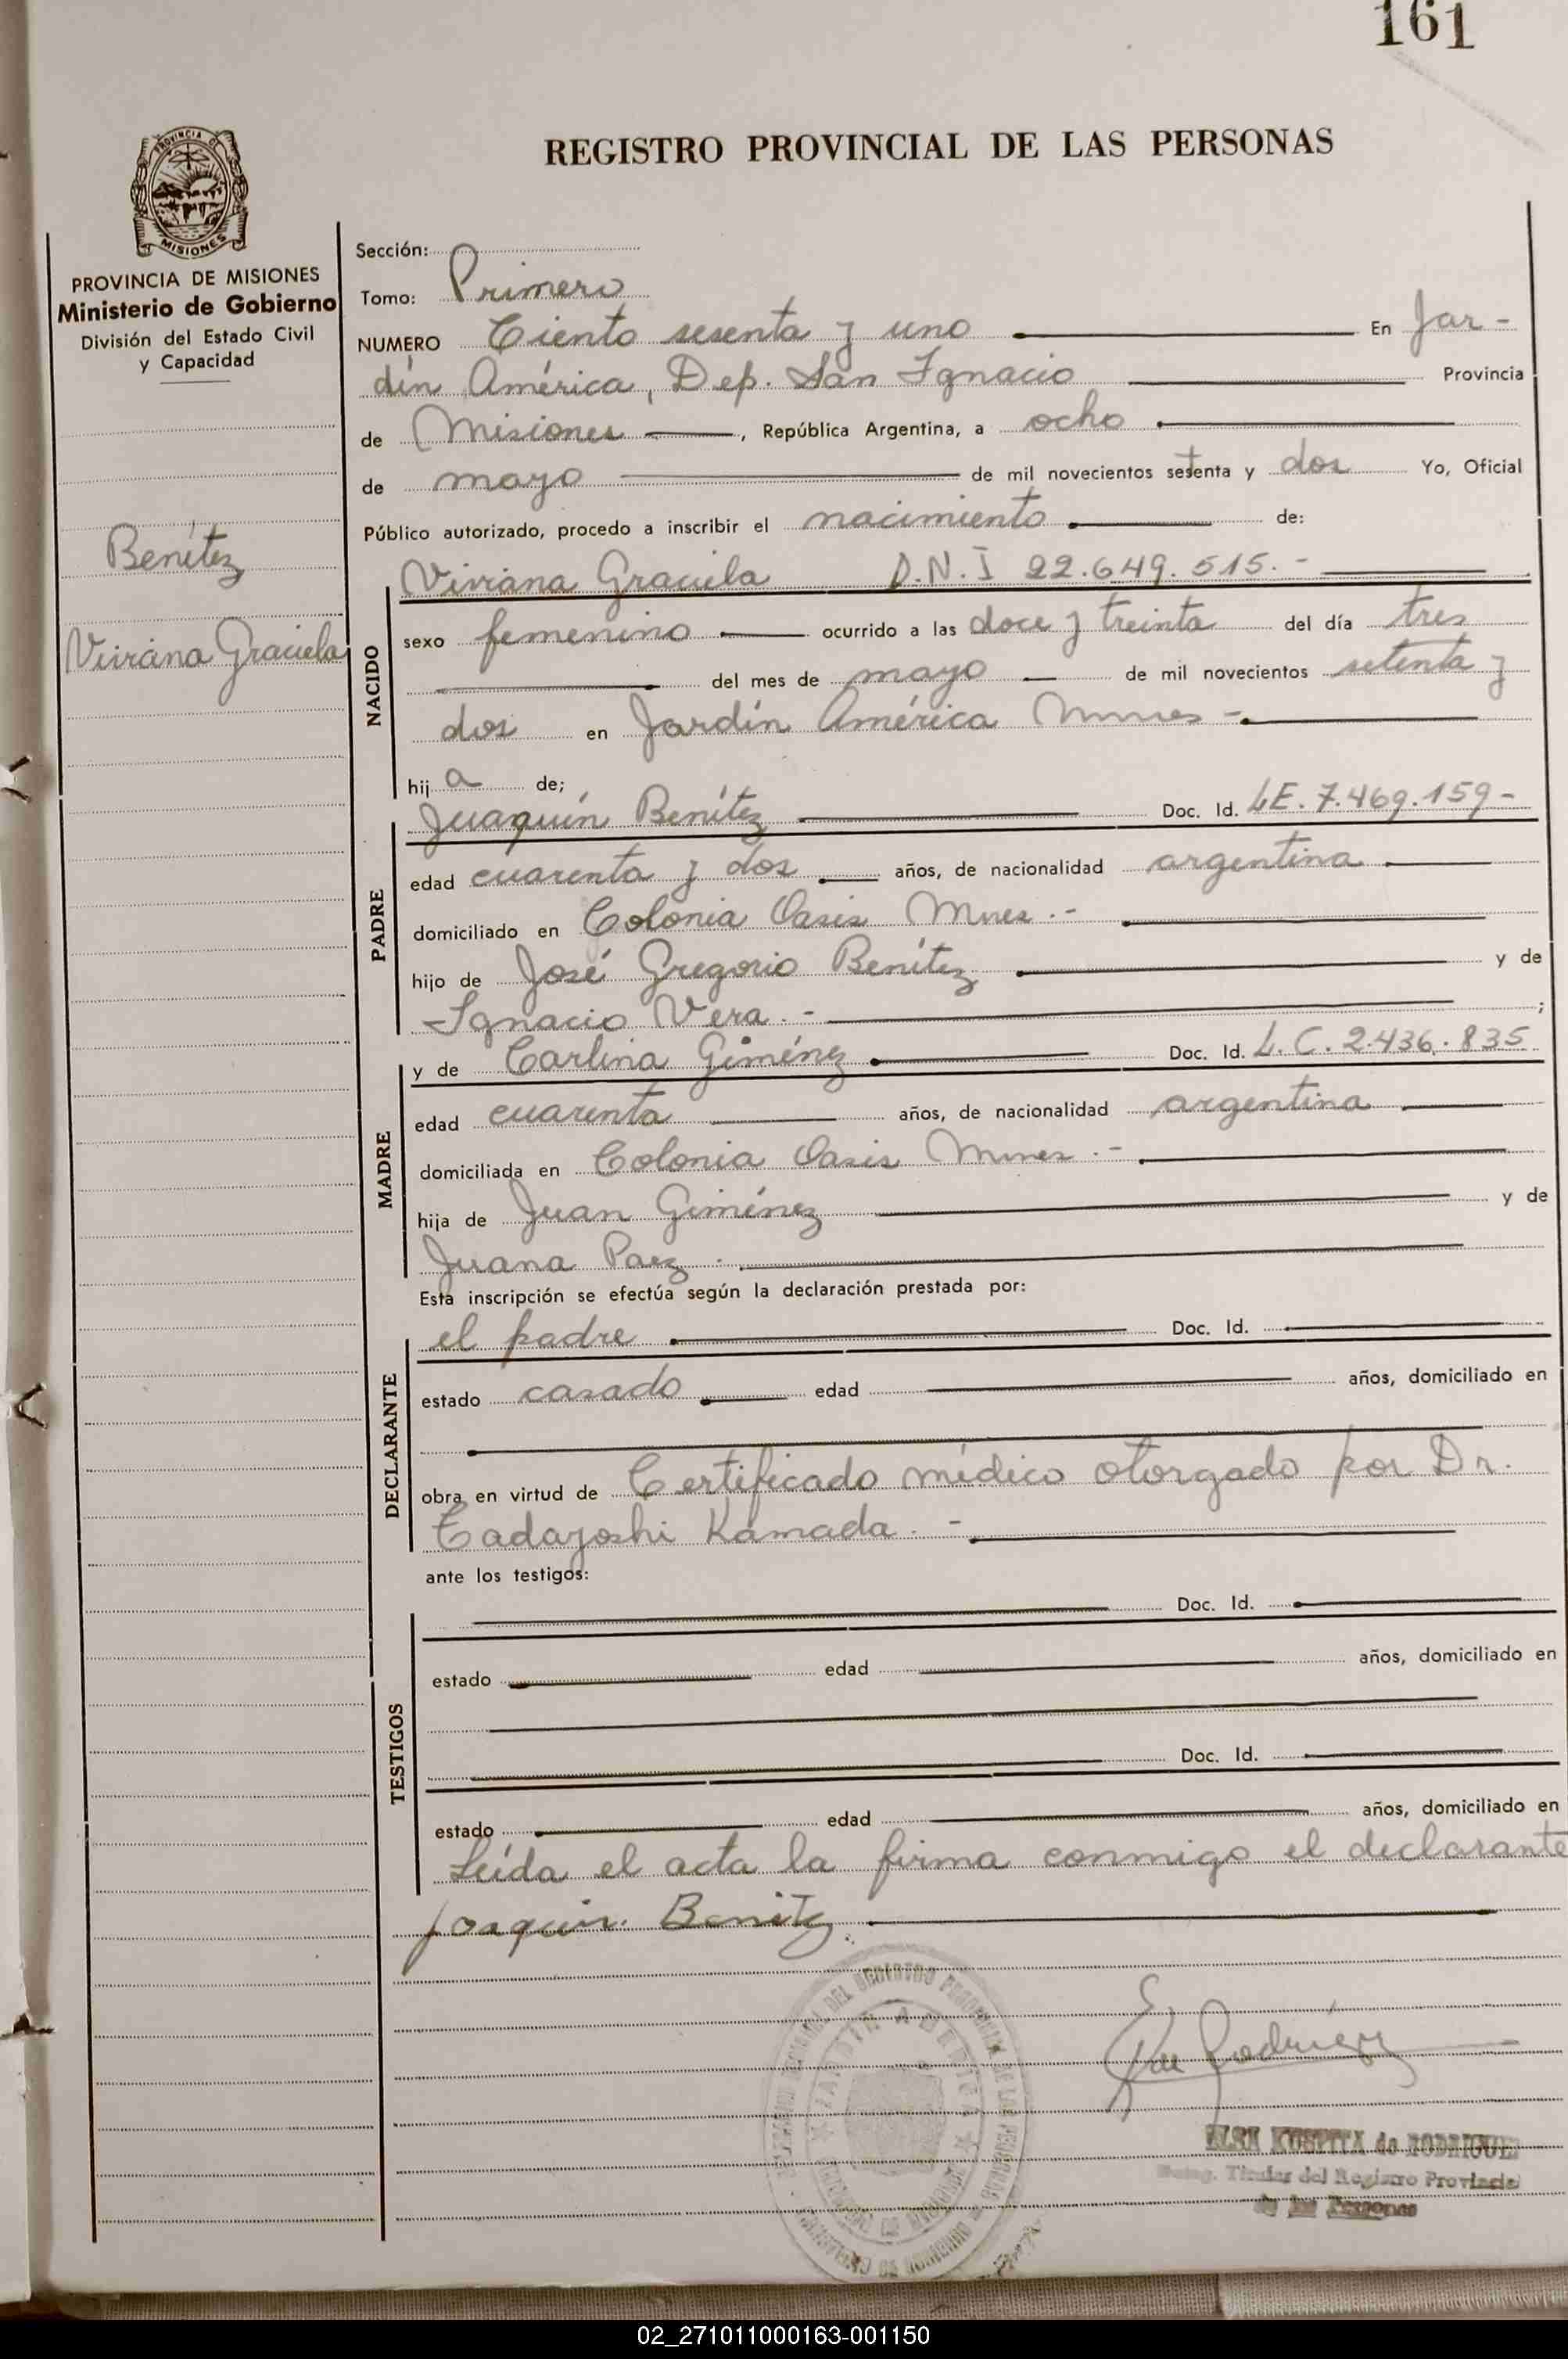 161
REGISTRO PROVINCIAL DE LAS PERSONAS
PROVINCIA
MISIONES
PROVINCIA DE MISIONES
Ministerio de Gobierno
División del Estado Civil
y Capacidad
Benítez
Viviana Graciela
Sección:
Tomo: Primero
NUMERO Ciento sesenta y uno En Jar-
dín América, Dep. San Ignacio Provincia
de Misiones, República Argentina, a ocho
de mayo de mil novecientos setenta y dos Yo, Oficial
Público autorizado, procedo a inscribir el nacimiento de:
Viviana Graciela D.N.I 22.649.515.-
NACIDO
sexo femenino ocurrido a las doce y treinta del día tres
del mes de mayo de mil novecientos setenta y
dos en Jardín América Mnnes -
hij a de;
Juaquín Benítez Doc. Id. LE. 7.469.159-
PADRE
edad cuarenta y dos años, de nacionalidad argentina
domiciliado en Colonia Oasis Mnes .-
hijo de José Gregorio Benítez y de
Ignacio Vera .- ;
y de Carlina Giménez Doc. Id. L.C. 2.436.835
MADRE
edad cuarenta años, de nacionalidad argentina
domiciliada en Colonia Oasis Mnnes .-
hija de Juan Giménez y de
Juana Paez .
Esta inscripción se efectúa según la declaración prestada por:
el padre Doc. Id.
DECLARANTE
estado casado edad años, domiciliado en
obra en virtud de Certificado médico otorgado por Dr.
Tadayoshi Kamada . -
ante los testigos:
Doc. Id.
TESTIGOS
estado edad años, domiciliado en
Doc. Id.
estado edad años, domiciliado en
Leída el acta la firma conmigo el declarante
Joaquin. Benitez
JARDIN AMERICA
Rodríguez
KOSPITA de RODRIGUEZ
Titular del Registro Provincial
de las Personas
02_271011000163-001150